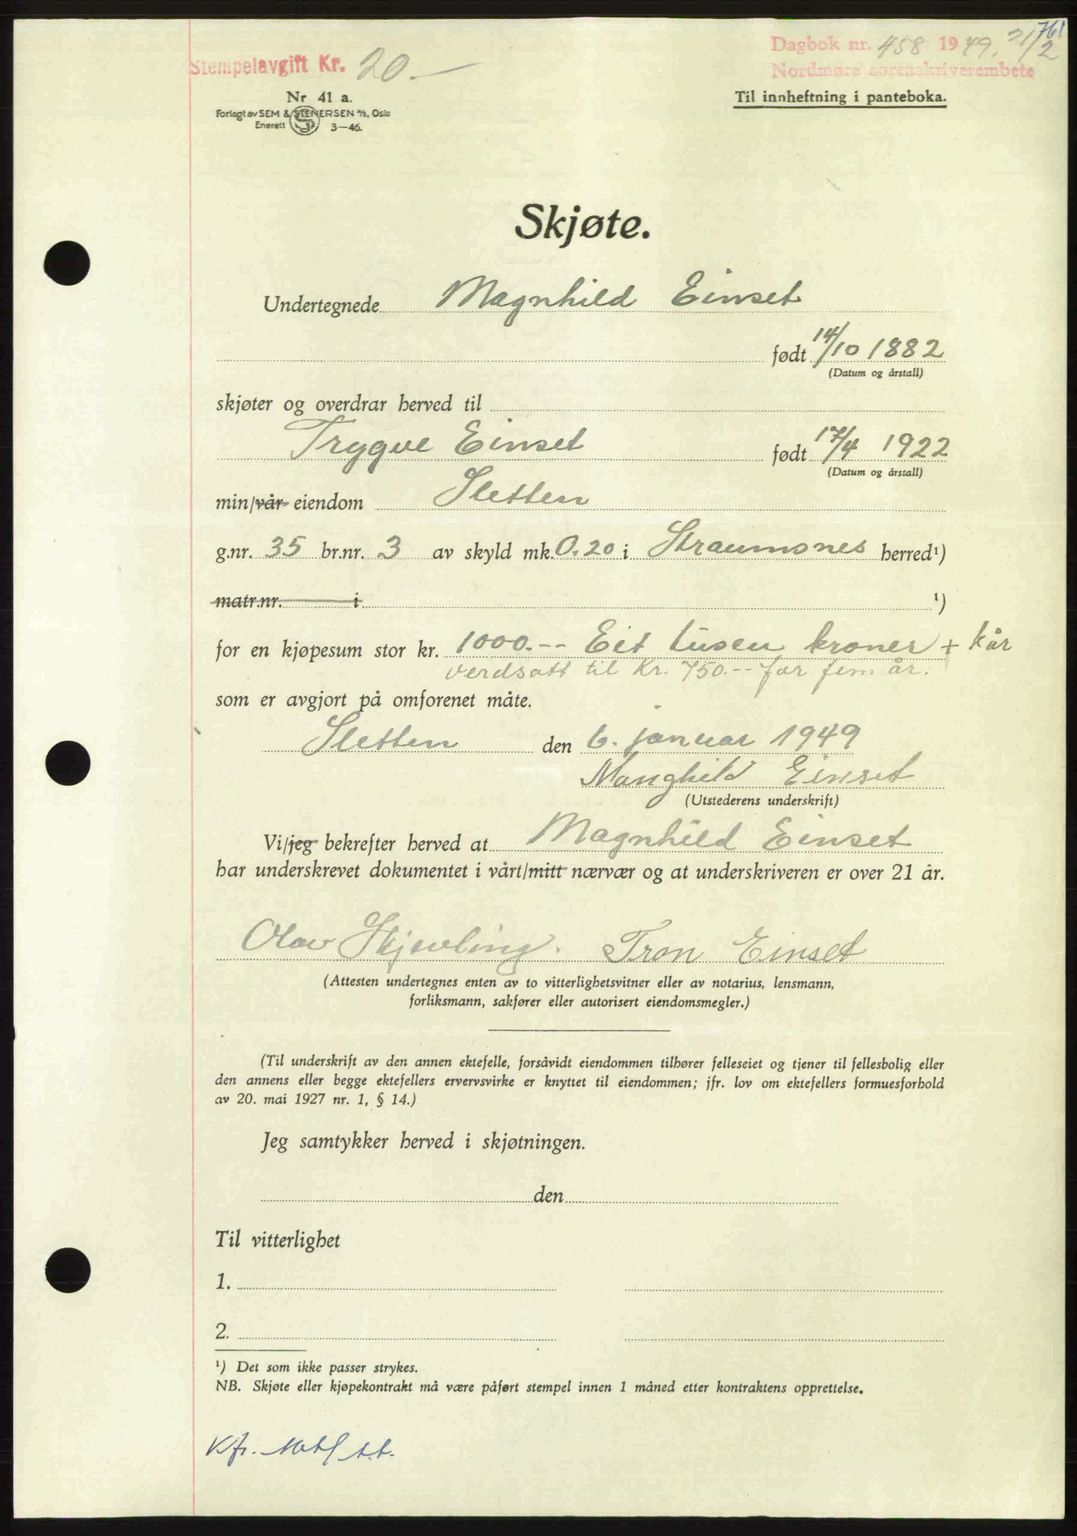 761
Dagbok nr. 458 1949. 21/2
Nordmøre sorenskriverembete
Stempelavgift Kr. 20.—
Til innheftning i panteboka.
Nr 41 a.
Forlagt av SEM & STENERSEN A/S, Oslo
Enerett S 3—46.
Skjøte.
Undertegnede Magnhild Einset
født 14/10 1882
(Datum og årstall)
skjøter og overdrar herved til
Trygve Einset født 17/4 1922
(Datum og årstall)
min/vår eiendom Sletten
g.nr. 35 br.nr. 3 av skyld mk. 0.20 i Straumsnes herred¹)
matr.nr. i ¹)
for en kjøpesum stor kr. 1000.-- Eit tusen kroner + kår
verdsatt til kr. 750.-- for fem år.
som er avgjort på omforenet måte.
Sletten den 6. januar 1949
Manghild Einset
(Utstederens underskrift)
Vi/jeg bekrefter herved at Magnhild Einset
har underskrevet dokumentet i vårt/mitt nærvær og at underskriveren er over 21 år.
Olav Skjevling. Tron Einset
(Attesten undertegnes enten av to vitterlighetsvitner eller av notarius, lensmann,
forliksmann, sakfører eller autorisert eiendomsmegler.)
(Til underskrift av den annen ektefelle, forsåvidt eiendommen tilhører felleseiet og tjener til fellesbolig eller
den annens eller begge ektefellers ervervsvirke er knyttet til eiendommen; jfr. lov om ektefellers formuesforhold
av 20. mai 1927 nr. 1, § 14.)
Jeg samtykker herved i skjøtningen.
den
Til vitterlighet
1.
2.
¹) Det som ikke passer strykes.
NB. Skjøte eller kjøpekontrakt må være påført stempel innen 1 måned etter kontraktens opprettelse.